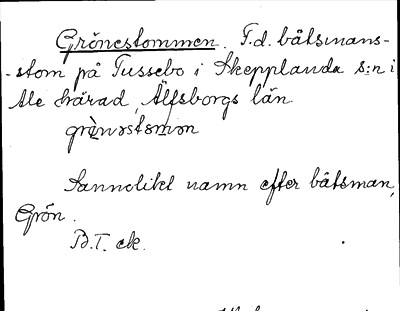 Grönestommen. F.d. båtsmans-
-stom på Tussebo i Skepplanda s:n i
Ale härad, Älfsborgs län
grènostomon
Sannolikt namn efter båtsman,
Grön.
B.T. ek.